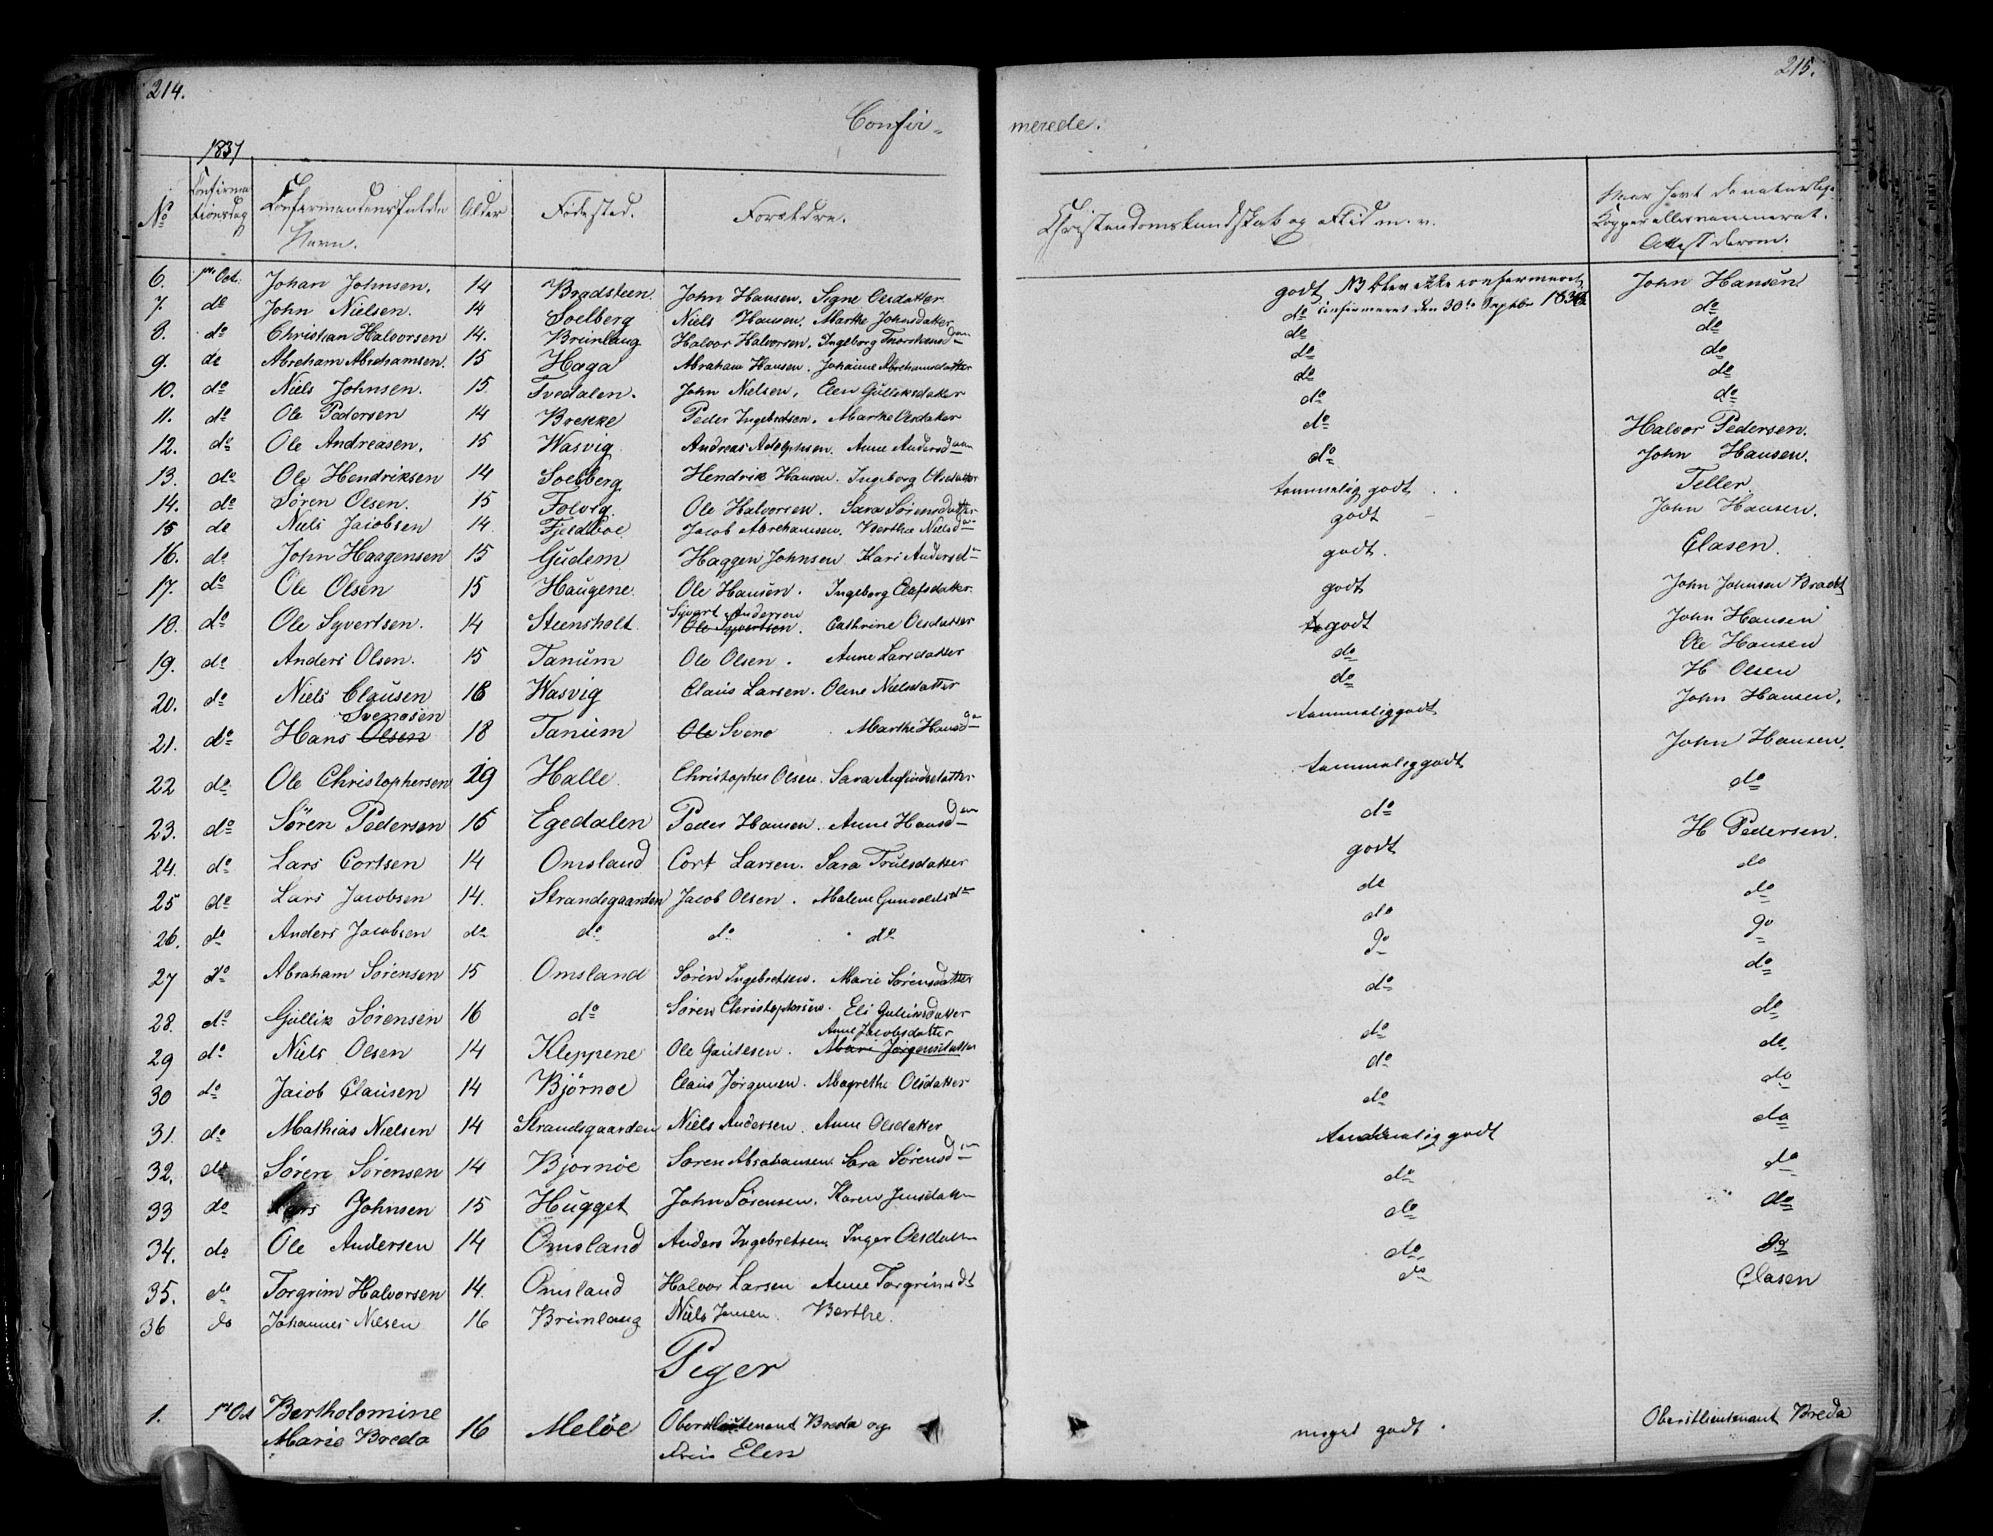 214.
215.
Confir-
merede.
1837
No
Confirma tionsdag
Confirmandens fulde Navn.
Alder
Födested.
Foreldre.
Christendomskundskab og Flid m. v.
Naar havt de naturlige Kopper eller vaccineret. Attest derom.
6. Oct. Johan Johnsen. 14 Bradsteen. John Hansen. Signe Olsdatter godt NB blev ikke confirmeret John Hansen
7. do John Nielsen. 14 Soelberg Niels Hansen. Marthe Johnsdatter do confirmeret den 30te Septbr do
8. do Christian Halvorsen 14. Brunlaug Halvor Halvorsen. Ingeborg do do
9. do Abreham Abrehamsen. 15 Haga Abraham Hansen. Johanne Abrehamsdatter do do
10. do Niels Johnsen. 15. Tvedalen. John Nielsen. Elen Gulliksdatter do do
11. do Ole Pedersen 14 Brekke Peder Ingebretsen. Marthe Olsdatter do do
12. do Ole Andreasen. 15 Wasvig Andreas Adolphsen. Anne Andersd do Halvor Pedersen.
13. do Ole Hendriksen 14 Soelberg Hendrik Hansen. Ingeborg Olsdatter do John Hansen.
14. do Sören Olsen. 15 Folvig. Ole Halvorsen. Sara Sörensdatter temmelig godt Teller
15 do Niels Jacobsen 14. Fjeldboe Jacob Abrehamsen. Berthe Nielsd godt John Hansen.
16. do John Haagensen 15 Gudem Haggen Johnsen Kari Andersd godt. Clasen.
17. do Ole Olsen 15 Haugene Ole Hansen. Ingeborg Olafsdatter. godt John Johnsen
18. do Ole Syvertsen. 14 Steensholt Syvert Andersen Ole Syvertsen. Cathrine Olsdatter godt John Hansen
19. do Anders Olsen. 15 Tanum Ole Olsen. Anne Larsdatter do Ole Hansen
20. do Niels Clausen 18 Wasvig Claus Larsen. Oline Nielsdatter do H Olsen
21. do Hans Olsen Svensen 18 Tanum Ole Svend Marthe Hansd temmelig godt John Hansen.
22 do Ole Christophersen 19 Halle. Christopher Olsen. Sara temmelig godt John Hansen.
23. do Sören Pedersen 16 Egedalen Peder Hansen. Anne Hansd do do
24. do Lars Cortsen 14 Omsland Cort Larsen. Sara Trulsdatter godt H Pedersen.
25 do Lars Jacobsen 14. Strandsgaarden Jacob Olsen. Malene Gunvaldsd do do
26. do Anders Jacobsen do do do do do do
27 do Abraham Sörensen 15 Omsland Sören Ingebretsen. Marie Sörensdatter do do
28. do Gullik Sörensen 16 do Sören Christophersen. Eli Gulliksdatter do do
29 do Niels Olsen 14 Kleppene Ole Gautesen. Anne Jacobsdatter Mari Jörgensdatter do do
30 do Jacob Clausen 14 Björnöe Claus Jörgensen. Magrethe Olsdatter do do
31. do Mathias Nielsen 14 Strandsgaarden Niels Andersen. Anne Olsdatter do do
32. do Sören Sörensen 14 Björnöe Sören Abrahamsen Sara Sörensd temmelig godt do
33 do Lars Johnsen 15 Hugget John Sörensen. Karen Jensdatter do do
34. do Ole Andersen 14 Omsland Anders Ingebretsen Inger Olsdatter do do
35. do Torgrim Halvorsen 14. Omsland Halvor Larsen Anne Torgrimsdt do do
36 do Johannes Nilsen 16 Brunlaug Niels Jensen. Berthe. do Clasen
Piger
1. 1ste Oct Bertholomine Marie Breda 16 Melöe Oberstlieutenant Breda og Frue Elen meget godt. Oberstlieutenant Breda